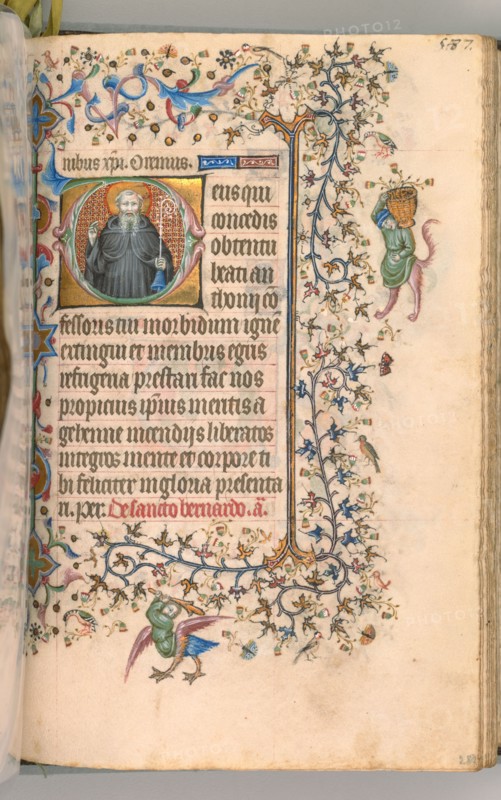 587.
nibus xp̄i. Oremus.
eus qui
concedis
obtentu
beati an
thonij cō
fessoris tui morbidum igne
extingui et membris egris
refrigeria prestari fac nos
propicius ip̄ius meritis a
gehenne incendijs liberatos
integros mente et corpore ti
bi feliciter in gloria presenta
ri. per. De sancto bernardo. ā.
PHOTO12